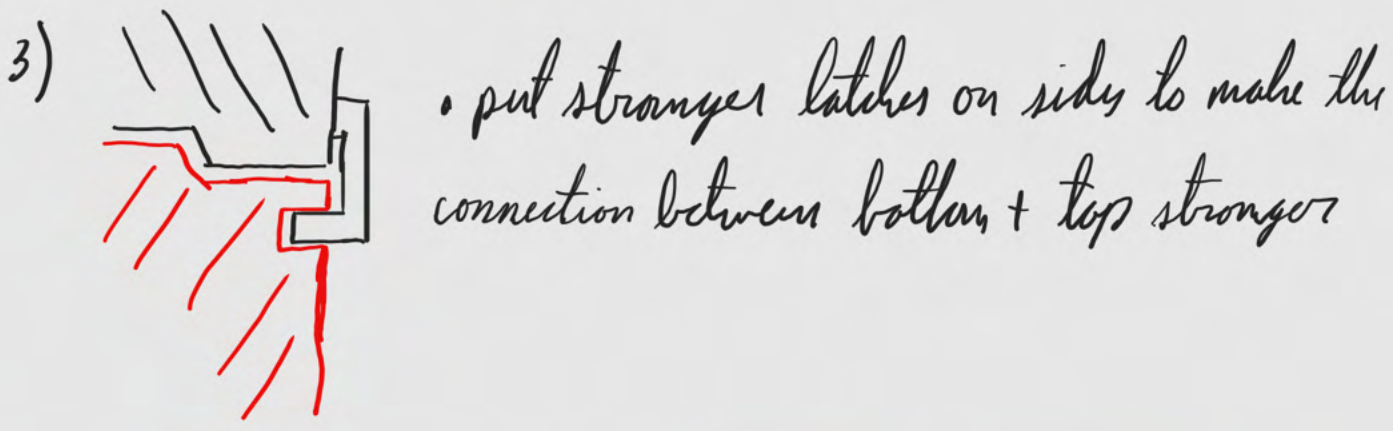 3)
• put stronger latches on sides to make the
connection between bottom + top stronger